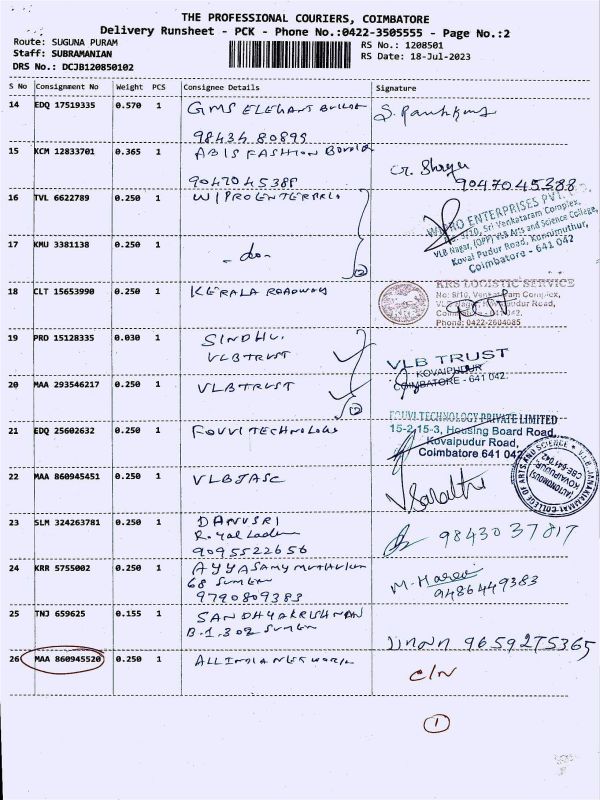 THE PROFESSIONAL COURIERS, COIMBATORE
Delivery Runsheet - PCK - Phone No.:0422-3505555 - Page No.:2
Route: SUGUNA PURAM
Staff: SUBRAMANIAN
DRS No.: DCJB120850102
RS No.: 1208501
RS Date: 18-Jul-2023
S No Consignment No Weight PCS Consignee Details Signature
14 EDQ 17519335 0.570 1 GMS ELEGANT
98434 80899
15 KCM 12833701 0.365 1 ABIS FASHION
9047045388
9047045388
16 TVL 6622789 0.250 1
WIPRO ENTERPRISES PVT.
No. 3/10, Sri Venkataram Complex,
VLB Nagar, (OPP) VLB Arts and Science College,
Kovai Pudur Road, Kuniimuthur,
Coimbatore - 641 042
17 KMU 3381138 0.250 1 - do -
18 CLT 15653990 0.250 1 KERALA ROADWAYS
KRS LOGISTIC SERVICE
Phone: 0422-2604085
19 PRO 15128335 0.030 1 SINDHU.
VLB TRUST
VLB TRUST
KOVAIPUDUR
COIMBATORE - 641 042.
20 MAA 293546217 0.250 1 VLB TRUST
21 EDQ 25602632 0.250 1 FOUVI TECHNOLOGY
FOUVI TECHNOLOGY PRIVATE LIMITED
15-2,15-3, Housing Board Road,
Kovaipudur Road,
Coimbatore 641 042
22 MAA 860945451 0.250 1 VLBJASC
V.L.B. JANAKIAMMAL COLLEGE OF ARTS AND SCIENCE
(AUTONOMOUS)
KOVAIPUDUR
CBE-641 042
23 SLM 324263781 0.250 1 DANUSRI
Royal
9095522656
9843037817
24 KRR 5755002 0.250 1
9790809383
9486449383
25 TNJ 659625 0.155 1 SANDHYAKRISHNAN
B.1.302
26 MAA 860945520 0.250 1 ALL INDIA NETWORK
C/N
1